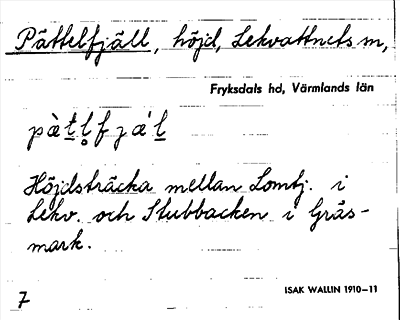 Pättelfjäll, höjd, Lekvattnets sn,
Fryksdals hd, Värmlands län
pàt̲l̥̲fjæ'l̲
Höjdsträcka mellan Lomtj. i
Lekv. och Stubbacken i Gräs-
mark.
7
ISAK WALLIN 1910–11